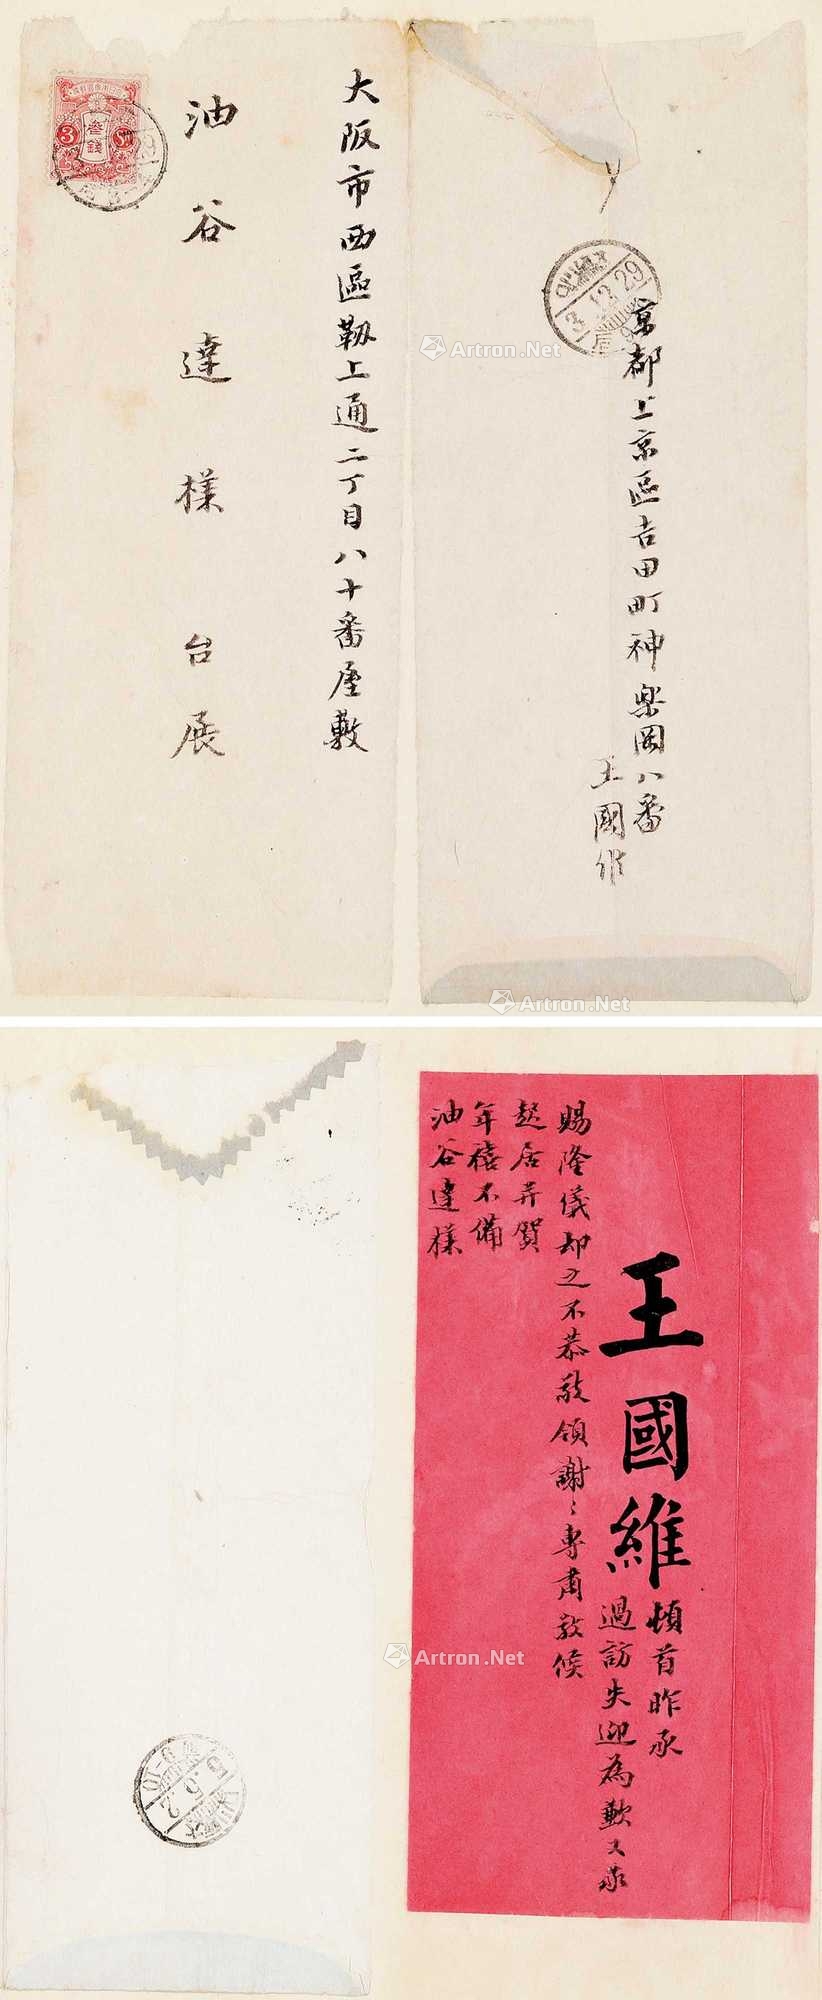 大阪市西區靱上通二丁目八十番屋敷
油谷達様
台展
3
叁錢
3 Sn
京都上京區吉田町神楽岡八番
王國維
3.12.29
Artron.Net
Artron.Net
王國維頓首昨承
過訪失迎為歉又承
賜隆儀却之不恭敬領謝〻專肅敬候
起居并賀
年禧不備
油谷達様
5.6.2
Artron.Net